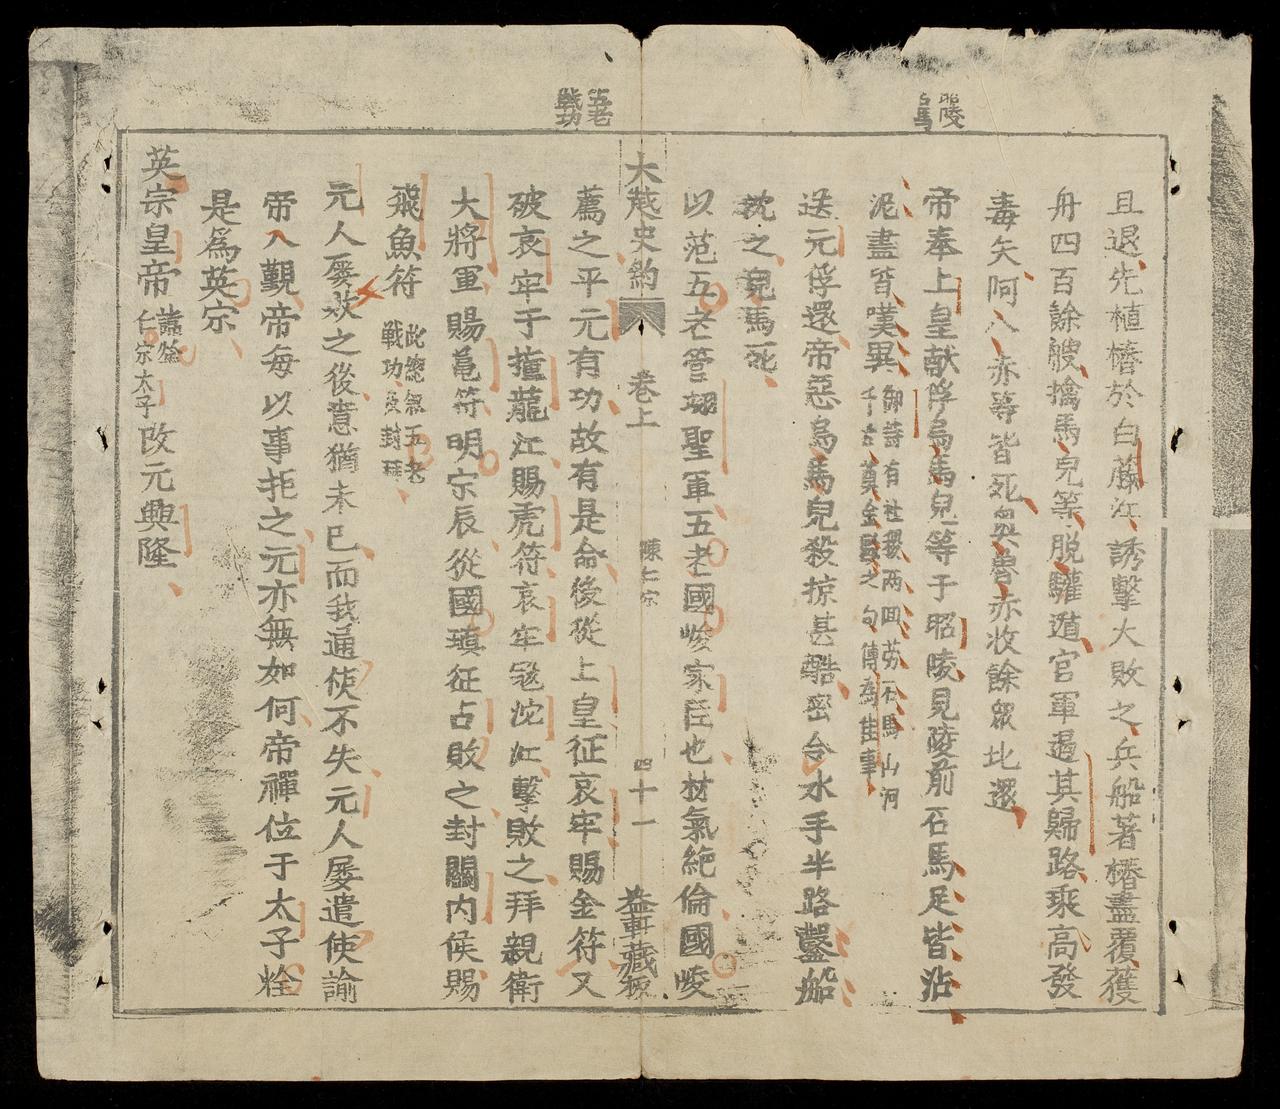 昭陵
烏馬
且退先植樁於白藤江誘擊大敗之兵船著樁盡覆獲
舟四百餘艘擒馬兒等脱驩遁官軍遏其歸路乘高發
毒矢阿八赤等皆死奧魯赤收餘衆北還
帝奉上皇献俘烏馬兒等于昭陵見陵前石馬足皆沾
泥盡皆嘆異
御詩有社稷兩回劳石馬山河
千古奠金甌之句傳為佳事
送元俘還帝惡烏馬兒殺掠甚酷密令水手半路鑿船
沈之兒馬死
以范五老管翊聖軍五老國峻家臣也材氣絶倫國峻
大越史約
卷上
陳仁宗
四十一
益軒藏板
五老
戰功
薦之平元有功故有是命後從上皇征哀牢賜金符又
破哀牢于撞龍江賜虎符哀牢冦沱江擊敗之拜親衛
大將軍賜龜符明宗辰從國瑱征占敗之封關内侯賜
飛魚符
此總叙五老
戰功及封拜
元人屡敗之後意猶未已而我通使不失元人屡遣使諭
帝入覲帝每以事拒之元亦無如何帝禪位于太子烇
是為英宗
英宗皇帝
諱烇
仁宗太子
改元興隆